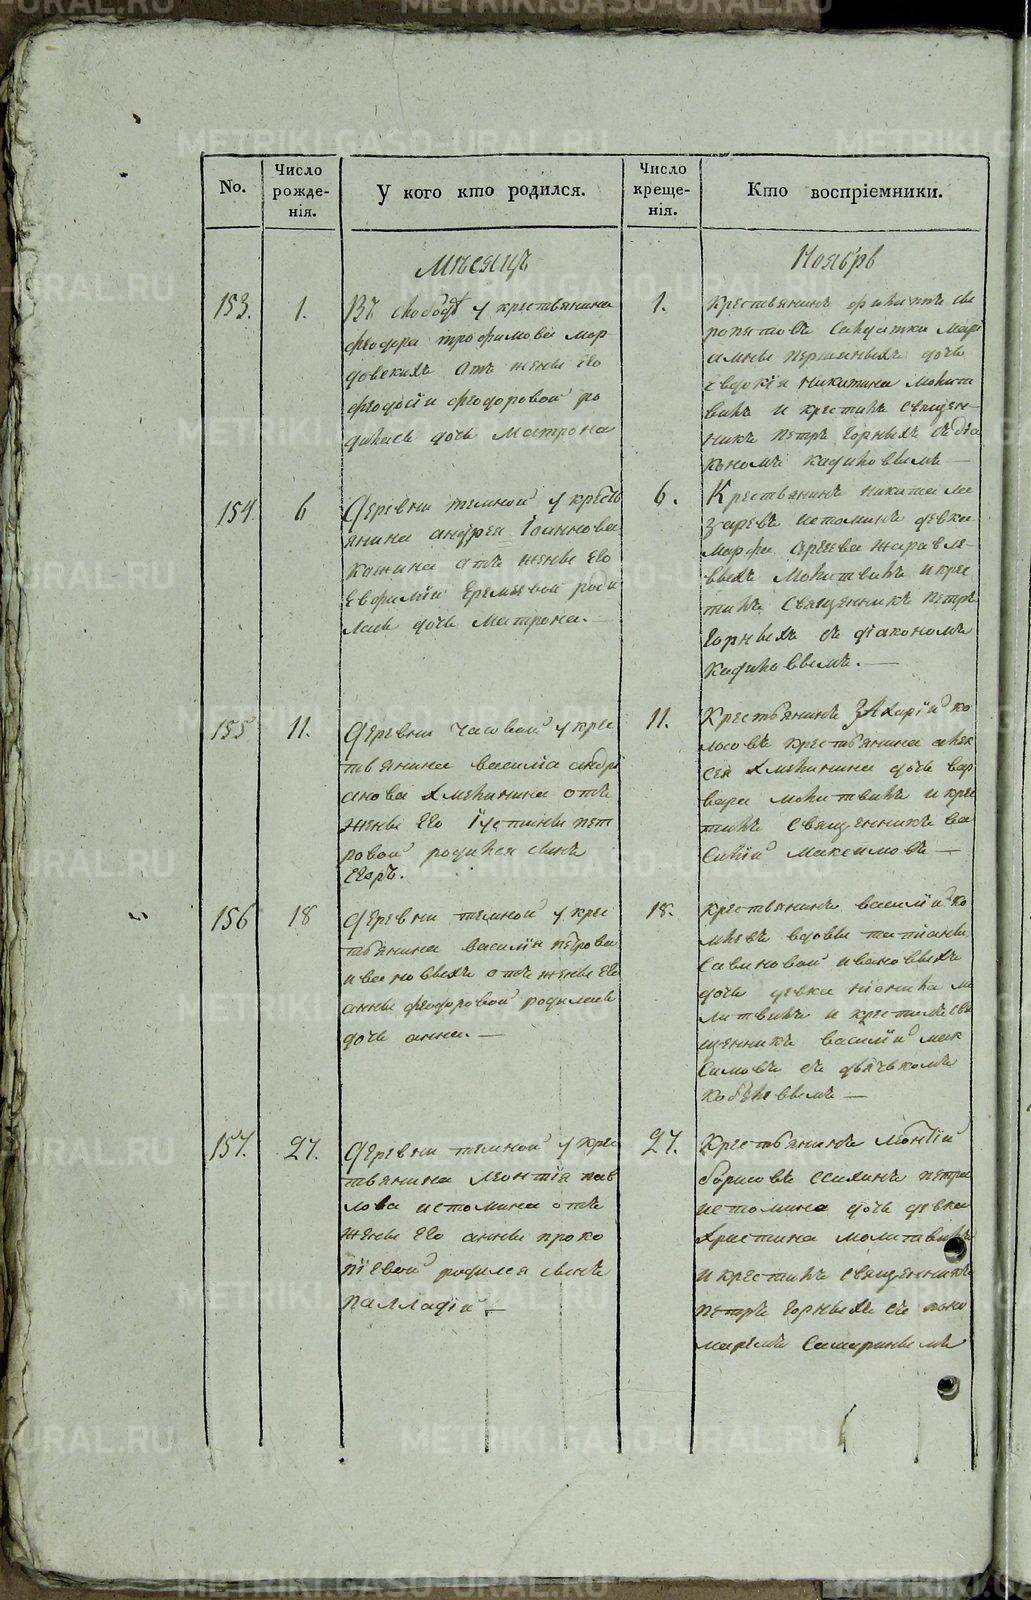 No.
Число рожде-
нія.
У кого кто родился.
Число креще-
нія.
Кто воспріемники.
Мѣсяцъ
Ноябрь
153.
1.
Въ слободѣ у крестьянина
феодора трофимова мор
довскихъ отъ жены его
феодосіи феодоровой ро
дилась дочь Матрона
1.
Крестьянинъ
солдатки Мар
дочь
Евдокія никитина молит
вилъ и крестилъ священ-
никъ петръ горныхъ съ діа
кономъ кадиловымъ —
154.
6
Деревни темной у кресть
янина андрея Іоаннова
кожина отъ жены его
Евфиміи Еремѣевой роди
лась дочь Матрона. —
6.
Крестьянинъ никита ла
заревъ истоминъ девка
марфа журавле-
выхъ Молитвилъ и крес
тилъ Священникъ петръ
горныхъ съ діакономъ
кадиловымъ. —
155
11.
Деревни часовой у крес
тьянина василіа андрі
анова Хмелинина отъ
жены его Іустины пет
ровой родился сынъ
Егоръ.
11.
Крестьянинъ Захарій ко
лосовъ крестьянина алек
сея Хмелинина дочь вар
вара молитвилъ и крес
тилъ священникъ ва
силій максимовъ —
156
18
Деревни темной у крес
тьянина василія петрова
ивановыхъ отъ жены его
анны феодоровой родилась
дочь анна. —
18.
Крестьянинъ василій ко
вдовы татіаны
Савиновой ивановыхъ
дочь девка мо
литвилъ и крестилъ свя
щенникъ василій мак
симовъ съ дьячькомъ
157.
27.
Деревни темной у крес
тьянина Леонтія пав
лова истомина отъ
жены его анны проко
піевой родился сынъ
палладій —
27.
Крестьянинъ леонтій
борисовъ петра
истомина дочь девка
Христина молитвилъ
и крестилъ священникъ
петръ горныхъ съ поно
маремъ Самаринымъ
METRIKI.GASO-URAL.RU